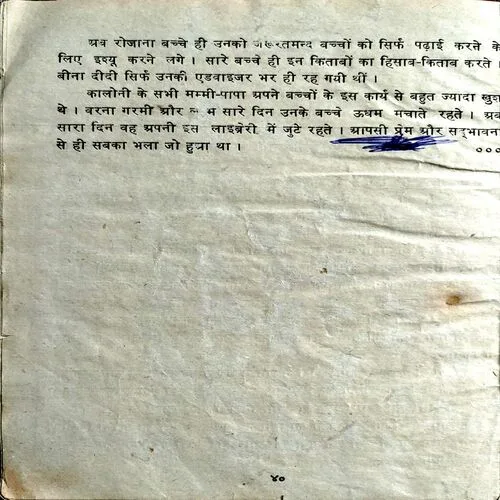 अब रोजाना बच्चे ही उनको जरूरतमन्द बच्चों को सिर्फ पढ़ाई करते के
लिए इश्यू करने लगे । सारे बच्चे ही इन किताबों का हिसाब-किताब करते ।
बीना दीदी सिर्फ उनकी एडवाइजर भर ही रह गयी थीं ।
कालोनी के सभी मम्मी-पापा अपने बच्चों के इस कार्य से बहुत ज्यादा खुश
थे । वरना गरमी और में सारे दिन उनके बच्चे ऊधम मचाते रहते । अब
सारा दिन वह अपनी इस लाइब्रेरी में जुटे रहते । आपसी प्रेम और सद्भावना
से ही सबका भला जो हुआ था । ०००
४०